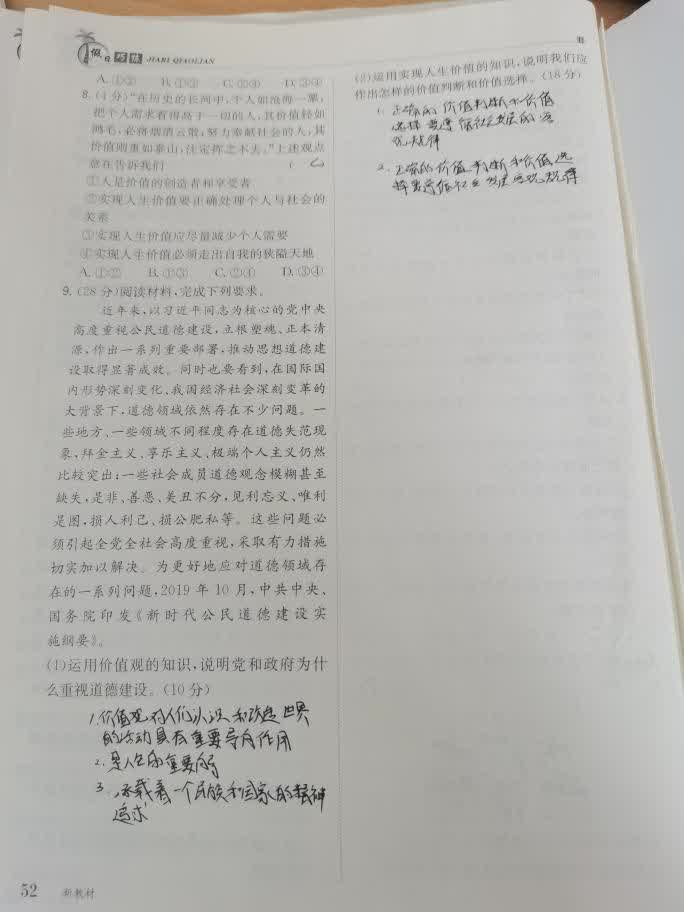 假日巧练 JIARI QIAOLIAN
A.①② B.①③ C.②④ D.③④
8.(4分)“在历史的长河中,个人如沧海一粟,
把个人需求看得高于一切的人,其价值轻如
鸿毛,必将烟消云散;努力奉献社会的人,其
价值则重如泰山,注定挥之不去。”上述观点
意在告诉我们 (
①人是价值的创造者和享受者
②实现人生价值要正确处理个人与社会的
关系
③实现人生价值应尽量减少个人需要
④实现人生价值必须走出自我的狭隘天地
A.①② B.①③ C.②④ D.③④
9.(28分)阅读材料,完成下列要求。
近年来,以习近平同志为核心的党中央
高度重视公民道德建设,立根塑魂、正本清
源,作出一系列重要部署,推动思想道德建
设取得显著成效。同时也要看到,在国际国
内形势深刻变化、我国经济社会深刻变革的
大背景下,道德领域依然存在不少问题。一
些地方、一些领域不同程度存在道德失范现
象,拜金主义、享乐主义、极端个人主义仍然
比较突出;一些社会成员道德观念模糊甚至
缺失,是非、善恶、美丑不分,见利忘义、唯利
是图,损人利己、损公肥私等。这些问题必
须引起全党全社会高度重视,采取有力措施
切实加以解决。为更好地应对道德领域存
在的一系列问题,2019年10月,中共中央、
国务院印发《新时代公民道德建设实
施纲要》。
(1)运用价值观的知识,说明党和政府为什
么重视道德建设。(10分)
1.价值观对人们认识和改造世界
的活动具有重要导向作用
2.是人生的重要向
3.承载着一个民族和国家的精神
追求
52 新教材
(2)运用实现人生价值的知识,说明我们应
作出怎样的价值判断和价值选择。(18分)
1.正确的价值判断和价值
选择要遵循社会发展的客
观规律
2.正确的价值判断和价值选
择要遵循社会发展客观规律